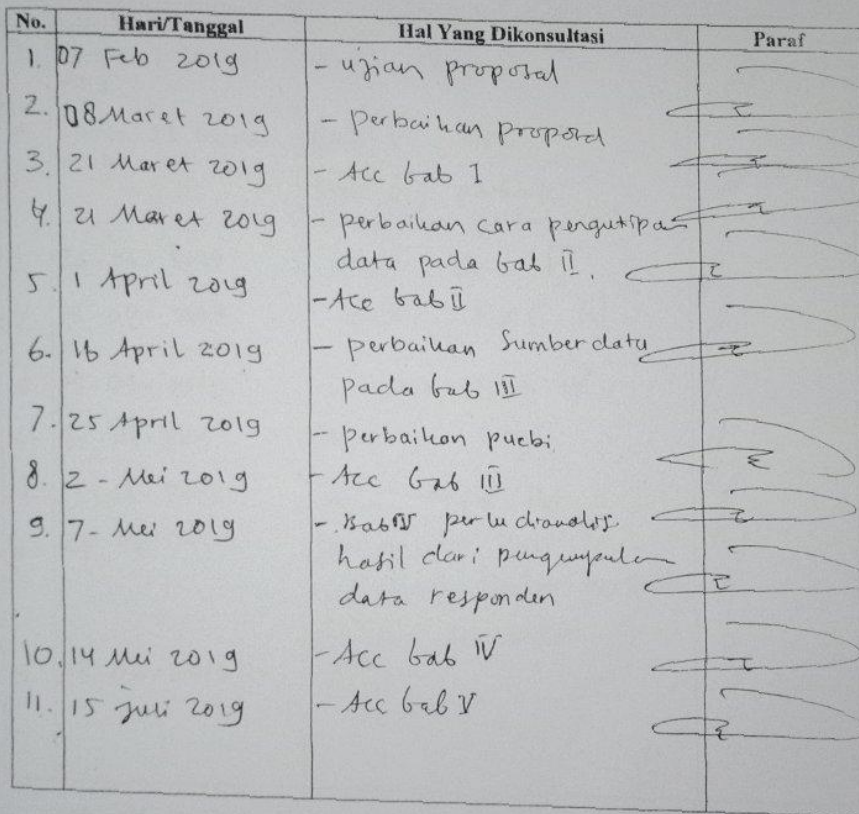 No. Hari/Tanggal Hal Yang Dikonsultasi Paraf
1. 07 Feb 2019 - ujian proposal
2. 08 Maret 2019 - Perbaikan proposal
3. 21 Maret 2019 - Acc bab I
4. 21 Maret 2019 - perbaikan cara pengutipan
data pada bab II.
5. 1 April 2019
- Acc bab II
6. 16 April 2019 - perbaikan Sumber data
pada bab III
7. 25 April 2019 - perbaikan puebi
8. 2 - Mei 2019 - Acc bab III
9. 7 - Mei 2019 - Bab IV perlu dianalisis
hasil dari pengumpulan
data responden
10. 14 Mei 2019 - Acc bab IV
11. 15 juli 2019 - Acc bab V